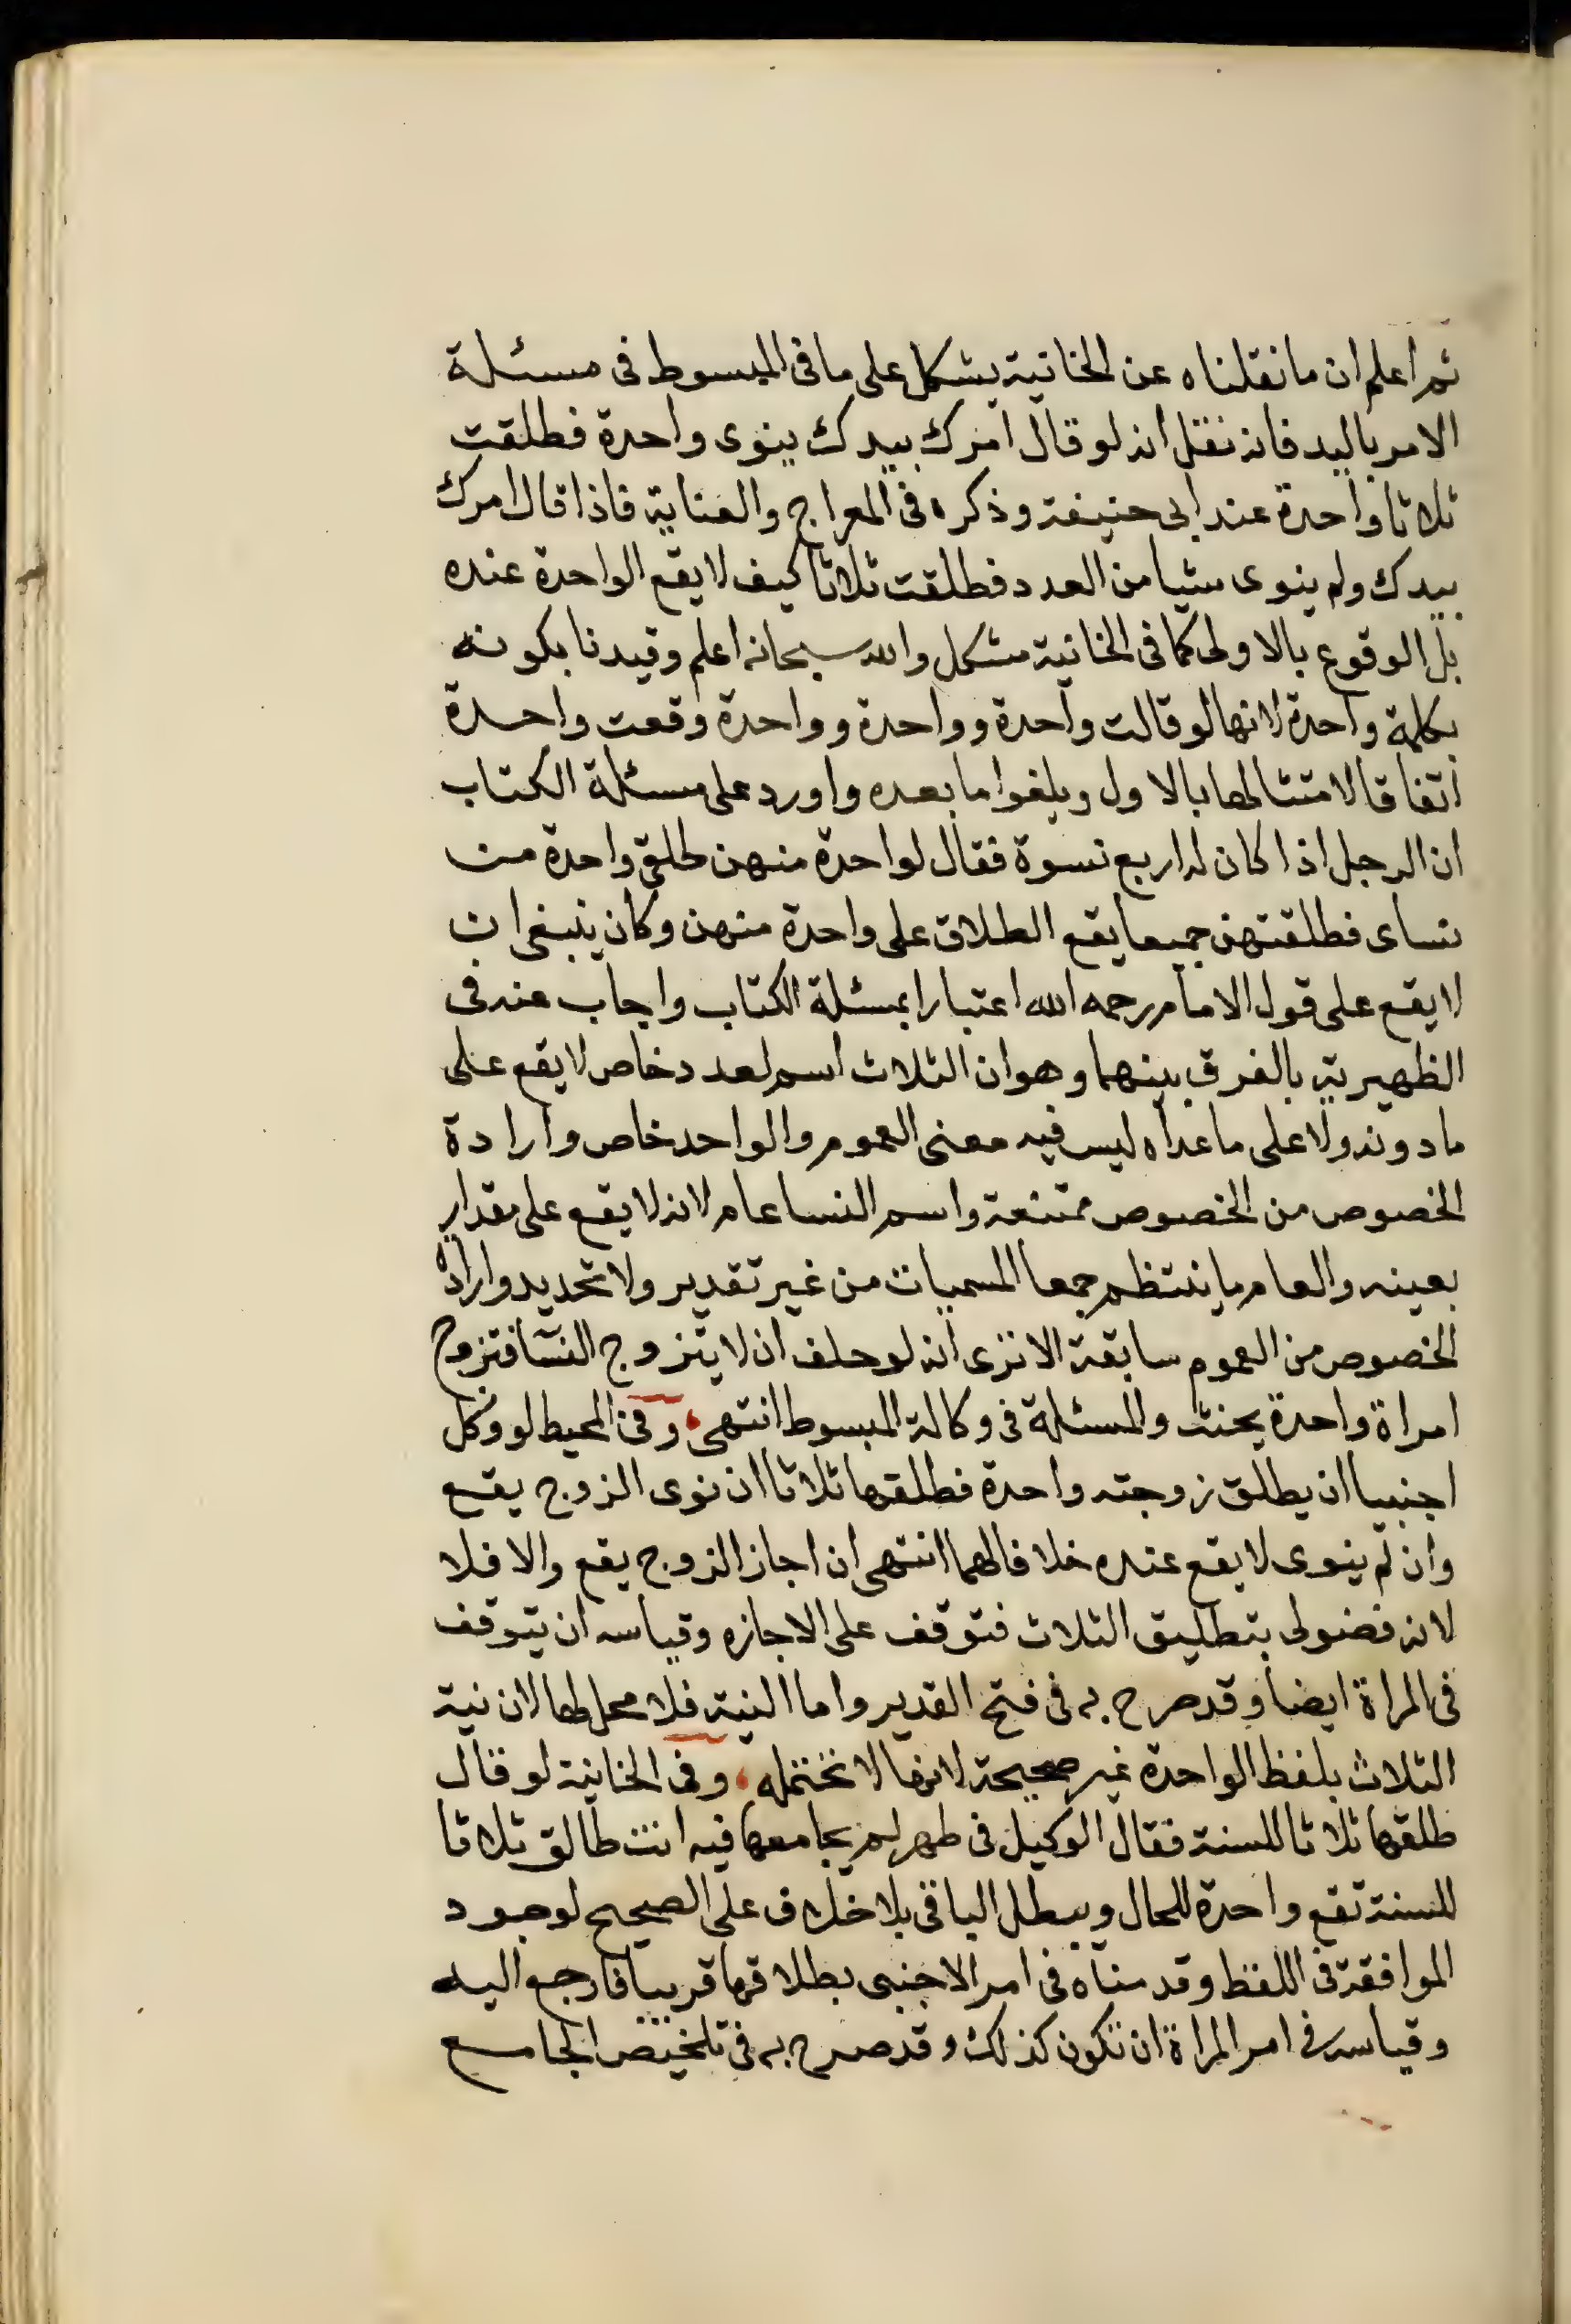 ثم اعلم ان ما نقلناه عن الخانية يشكل على ما في المبسوط في مسئلة
الامر باليد فانه نقل انه لو قال امرك بيدك ينوى واحدة فطلقت
ثلاثا واحدة عند ابى حنيفة وذكره في المعراج والعناية فاذا قال امرك
بيدك ولم ينوى شيا من العدد فطلقت ثلاثا كيف لا يقع الواحدة عنده
بل الوقوع بالاولى كما في الخانية مشكل والله سبحانه اعلم وقيدنا بكونه
بكلمة واحدة لانها لو قالت واحدة وواحدة وواحدة وقعت واحدة
اتفاقا لامتثالها بالاول ويلغوا ما بعده واورد على مسئلة الكتاب
ان الرجل اذا كان له اربع نسوة فقال لواحدة منهن طلقى واحدة من
نساى فطلقتهن جميعا يقع الطلاق على واحدة منهن وكان ينبغى ان
لا يقع على قول الامام رحمه الله اعتبارا بمسئلة الكتاب واجاب عنه في
الظهيرية بالفرق بينهما وهو ان الثلاث اسم لعدد خاص لا يقع على
ما دونه ولا على ما عداه ليس فيه معنى العموم والواحد خاص وارادة
الخصوص من الخصوص ممتنعة واسم النسا عام لانه لا يقع على مقدار
بعينه والعام ما ينتظم جمعا المسميات من غير تقدير ولا تحديد وارادة
الخصوص من العموم سابقة الا ترى انه لو حلف ان لا يتزوج النسآ فتزوج
امراة واحدة يحنث والمسئلة في وكالة المبسوط انتهى، وفى المحيط لو وكل
اجنبيا ان يطلق زوجته واحدة فطلقها ثلاثا ان نوى الزوج يقع
وان لم ينوى لا يقع عنده خلافا لهما انتهى ان اجاز الزوج يقع والا فلا
لانه فضولى بتطليق الثلاث فتوقف على الاجازه وقياسه ان يتوقف
في المراة ايضا وقد صرح به في فتح القدير واما النية فلا محل لها لان نية
الثلاث بلفظ الواحدة غير صحيحة لانها لا تحتمله، وفى الخانية لو قال
طلقها ثلاثا للسنة فقال الوكيل في طهر لم يجامعها فيه انت طالق ثلاثا
للسنة تقع واحدة للحال ويبطل الباقى بلا خلاف على الصحيح لوجود
الموافقة في اللفظ وقدمناه في امر الاجنبى بطلاقها قريبا فارجع اليه
وقياسه في امر المراة ان تكون كذلك وقد صرح به في تلخيص الجامع